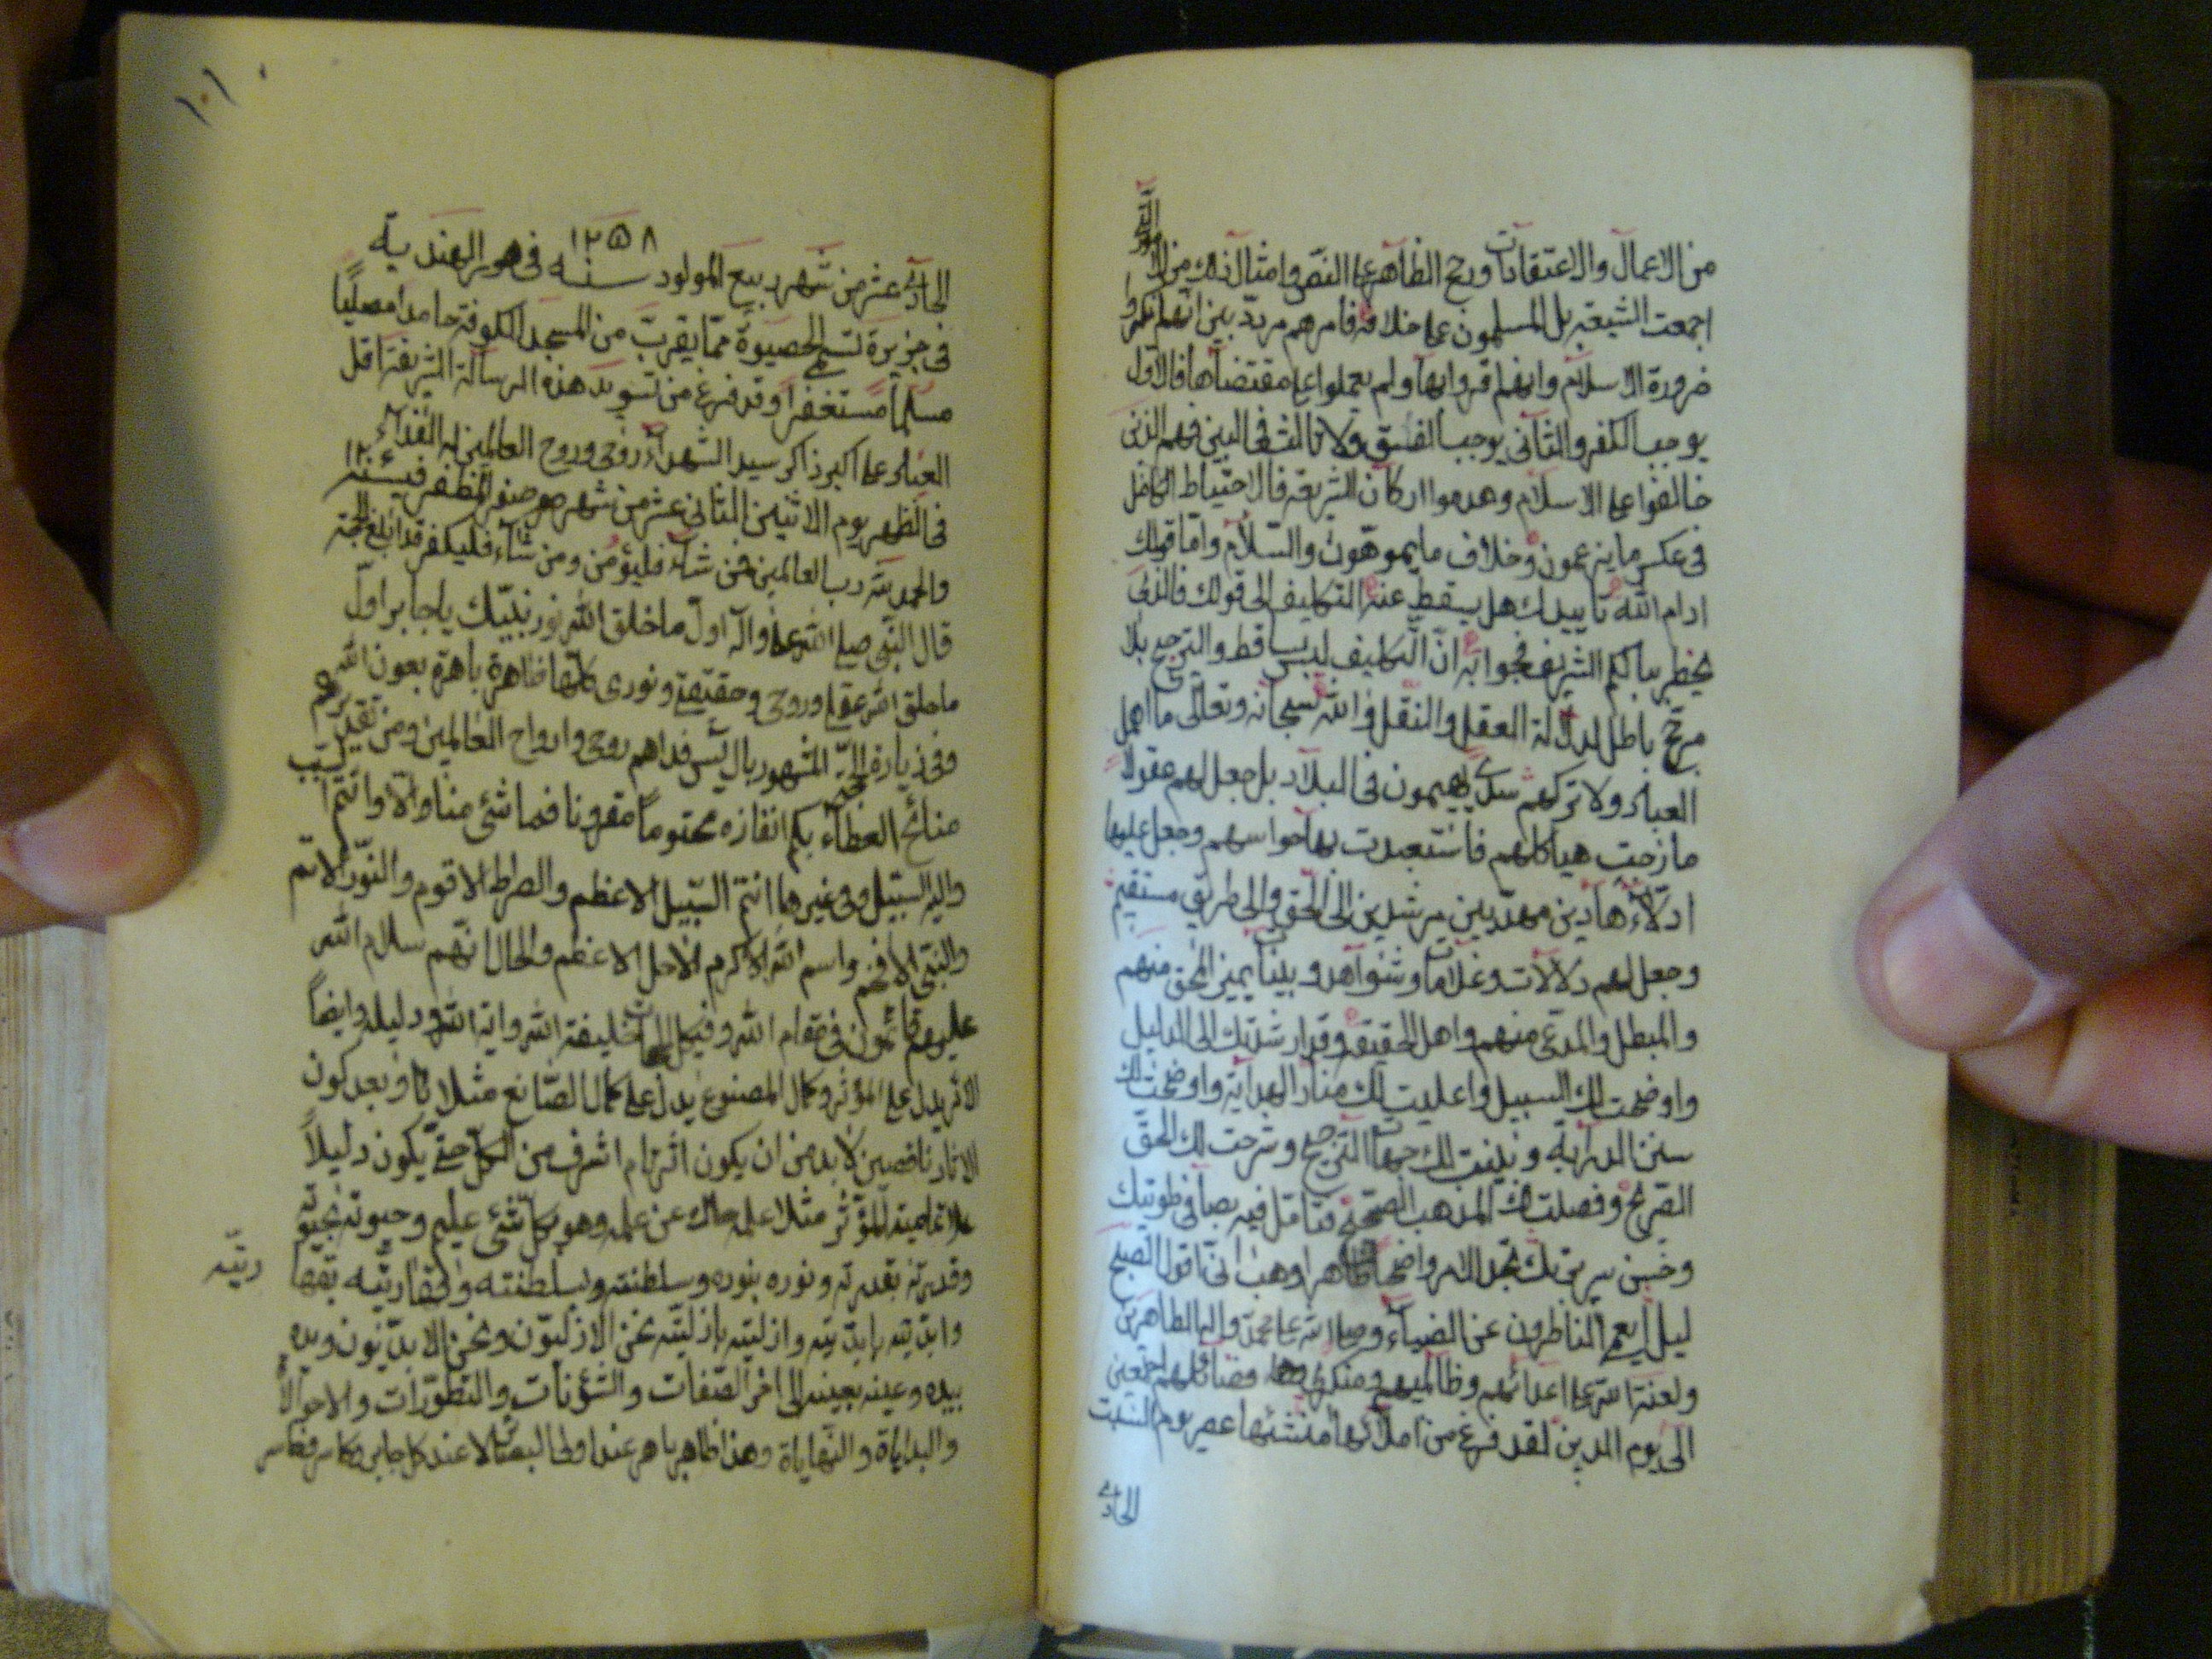 من الاعمال والاعتقادات ورجح الظاهر على النص وامثال ذلك من الامور التى
اجمعت الشيعة بل المسلمون على خلافه فامرهم مردد بين انهم انكروا
ضرورة الاسلام وانهم اقروا بها ولم يعملوا على مقتضاها فالاول
يوجب الكفر والثانى يوجب الفسق ولا ثالث فى البين فهم الذين
خالفوا على الاسلام وهدموا اركان الشريعة فالاحتياط الكامل
فى عكس ما يزعمون وخلاف ما يموهون والسلام واما قولك
ادام الله تاييدك هل يسقط عنه التكليف الى قولك فالذى
يخطر ببالكم الشريف فجوابه ان التكليف ليس يساقط والترجيح بلا
مرجح باطل لدلالة العقل والنقل والله سبحانه وتعالى ما اهمل
العباد ولا تركهم سدى يهيمون فى البلاد بل جعل لهم عقولا
مازجت هياكلهم فاستعبدت بها حواسهم وجعل عليها
ادلاء هادين مهديين مرشدين الى الحق والى طريق مستقيم
وجعل لهم دلالات وعلامات وشواهد وبينات يميز المحق منهم
والمبطل والمدعى منهم واهل الحقيقة وقد ارشدتك الى الدليل
واوضحت لك السبيل واعليت لك منار الهداية واوضحت لك
سنن الدراية وبينت لك جهات الترجيح وشرحت لك الحق
الصريح وفصلت لك المذهب الصحيح فتامل فيه بصافى طويتك
وحسن سريرتك تجد الامر واضحا ظاهرا وهب انى اقول الصبح
ليل ايعمى الناظرون عن الضياء وصلى الله على محمد واله الطاهرين
ولعنة الله على اعدائهم وظالميهم ومنكرى فضائلهم اجمعين
الى يوم الدين لقد فرغ من املائها منشئها عصر يوم السبت
الحادى
١٠١
الحادى عشر من شهر ربيع المولود سنه ١٢٥٨ فى هور الهندية
فى جزيرة تسمى الحصيوة مما يقرب من المسجد الكوفة حامدا مصليا
مسلما مستغفرا وقد فرغ من تسويد هذه الرسالة الشريفة اقل
العباد على اكبر ذاكر سيد الشهداء روحى وروح العالمين له الفداء
فى الظهر يوم الاثنين الثانى عشر من شهر صفر المظفر فى سنة
والحمد لله رب العالمين فمن شاء فليؤمن ومن شاء فليكفر قد ابلغ الحجة
قال النبى صلى الله عليه وآله اول ما خلق الله نور نبيك يا جابر اول
ما خلق الله عقلى وروحى وحقيقتى ونورى كلها ظاهرة باهرة بعون الله
وفى زيارة الحجة المشهور بال يس فداهم روحى وارواح العالمين ومن تقديرهم
منائح العطاء بكم انفاذه محتوما مقرونا فما شئ منا الا وانتم له السبب
واليه السبيل وفى غيرها انتم السبيل الاعظم والصراط الاقوم والنور الاتم
والنبى الافخم واسم الله الاكرم الاجل الاعظم والحال انهم سلام الله
عليهم قائمون فى مقام الله وفى كل خليفة الله واية الله ودليله وايضا
الاثر يدل على المؤثر وكمال المصنوع يدل على كمال الصانع مثلا وبعد كون
الاثار ناقصين لابد من ان يكون اثرهم اشرف من الكل حتى يكون دليلا
على اعلمية المؤثر مثلا علمه حاك عن علمه وهو بكل شئ عليم وحيوته بحيوته
وقدرته بقدرته ونوره بنوره وسلطنته بسلطنته وقهاريته
ريته
وابديته بابديته وازليته بازليته نحن الازليون ونحن الابديون ويده
بيده وعينه بعينه الى اخر الصفات والشؤنات والتطورات والاحوالات
والبداياة والنهاياة وهذا ظاهر باهر عند اولى البصائر لا عند كل جابر